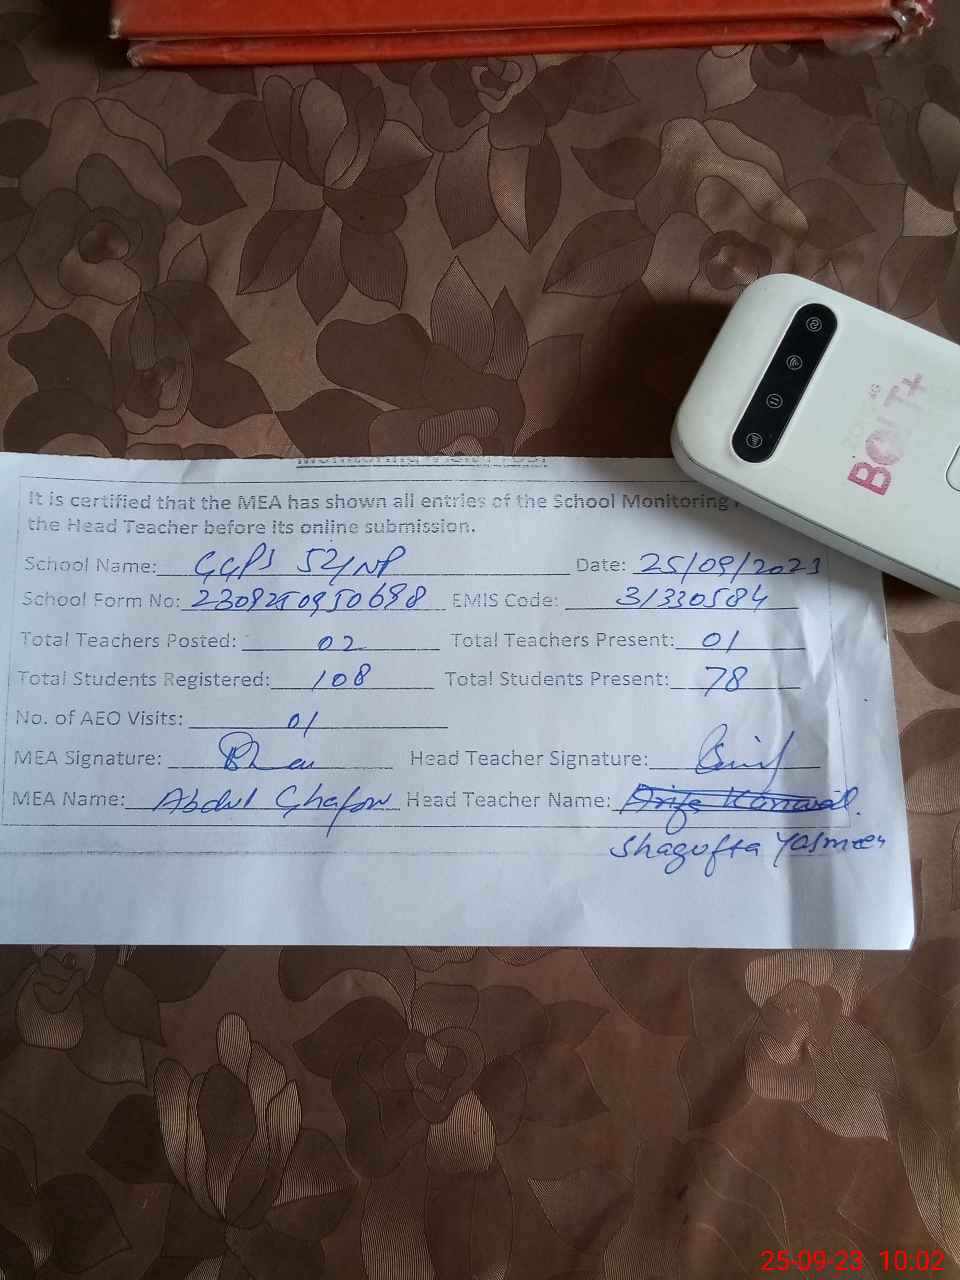 It is certified that the MEA has shown all entries of the School Monitoring
the Head Teacher before its online submission.
School Name: GGPS 52/NP Date: 25/09/2023
School Form No: 2309250950698 EMIS Code: 31330584
Total Teachers Posted: 02 Total Teachers Present: 01
Total Students Registered: 108 Total Students Present: 78
No. of AEO Visits: 01
MEA Signature: Head Teacher Signature:
MEA Name: Abdul Ghafoor Head Teacher Name:
Shagufta Yasmeen
4G
BOLT+
25-09-23 10:02